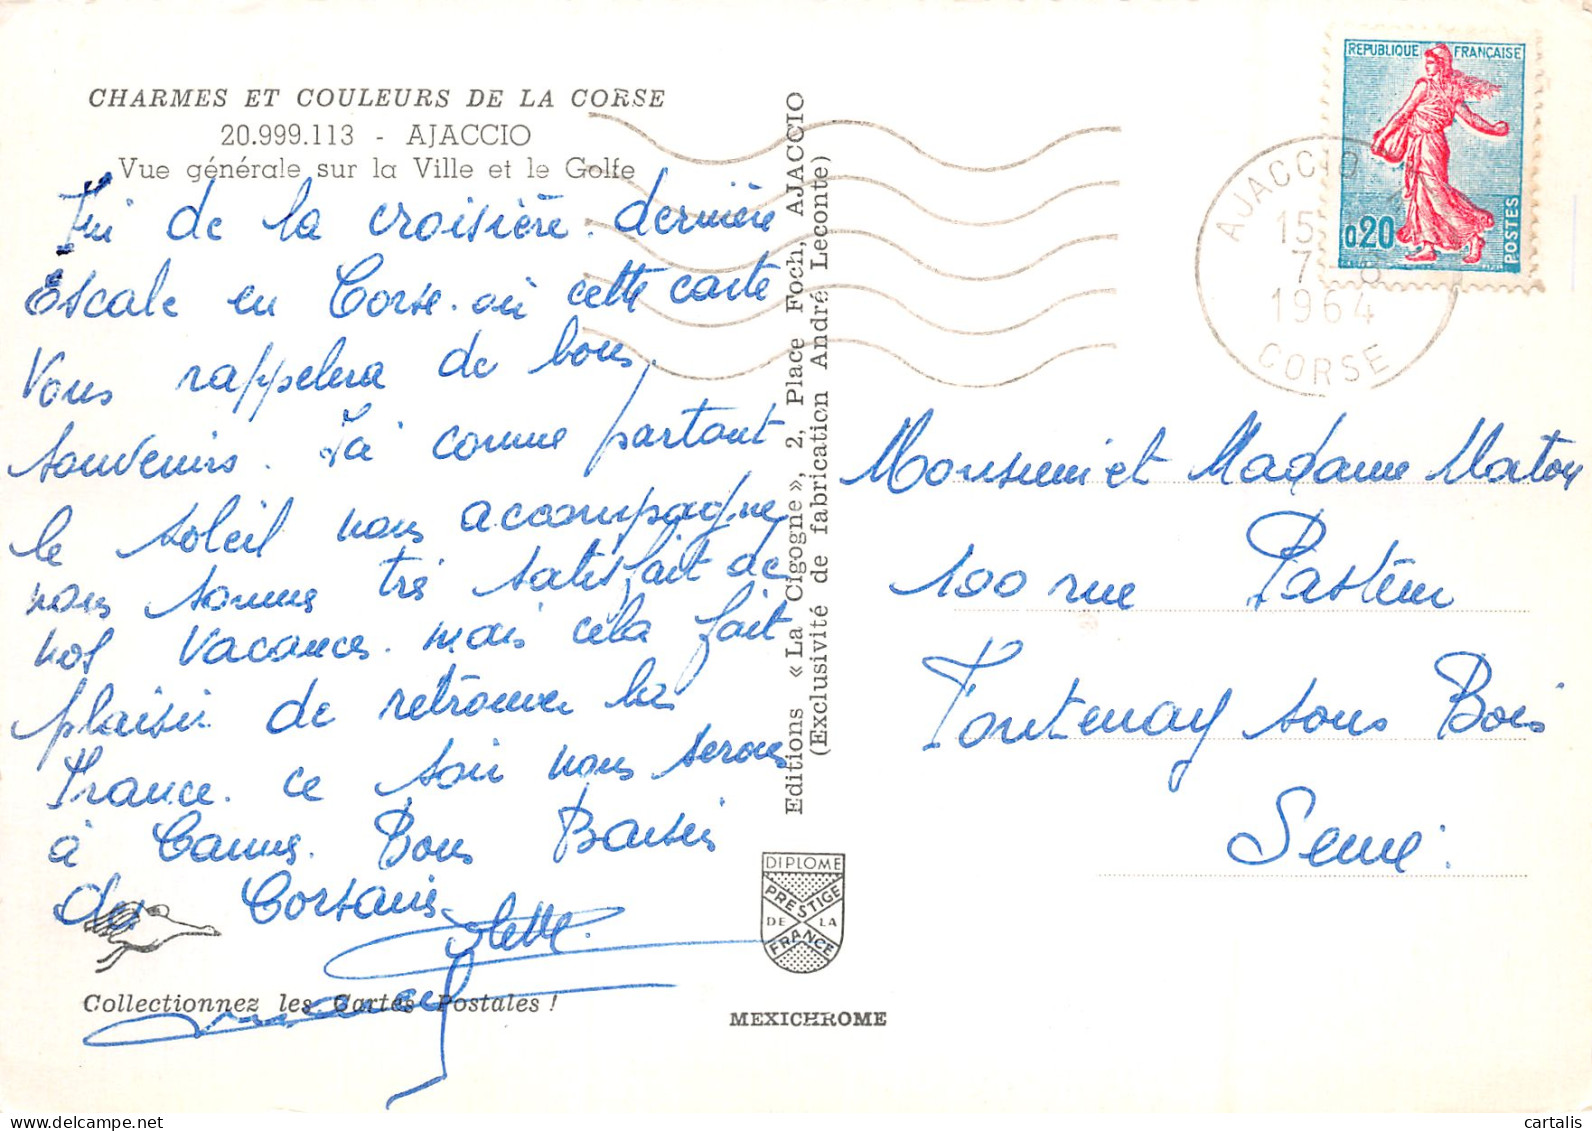 CHARMES ET COULEURS DE LA CORSE
20.999.113 - AJACCIO
Vue générale sur la Ville et le Golfe
Fin de la croisière. dernière
Escale en Corse. où cette carte
Vous rappelera de bons
souvenirs. Ici comme partout
le soleil nous accompagne
nous sommes très satisfait de
nos vacances. mais cela fait
plaisir de retrouver la
France. ce soir nous serons
à Cannes. Bons Baisers
des Corsains
Colette.
Marcel
Collectionnez les Cartes Postales !
Editions «La Cigogne», 2, Place Foch, AJACCIO
(Exclusivité de fabrication André Leconte)
DIPLOME
PRESTIGE
DE LA
FRANCE
MEXICHROME
REPUBLIQUE FRANÇAISE
0.20
POSTES
AJACCIO
15
7 8
1964
CORSE
Monsieur et Madame Maton
100 rue Pasteur
Fontenay sous Bois
Seine.
cartalis